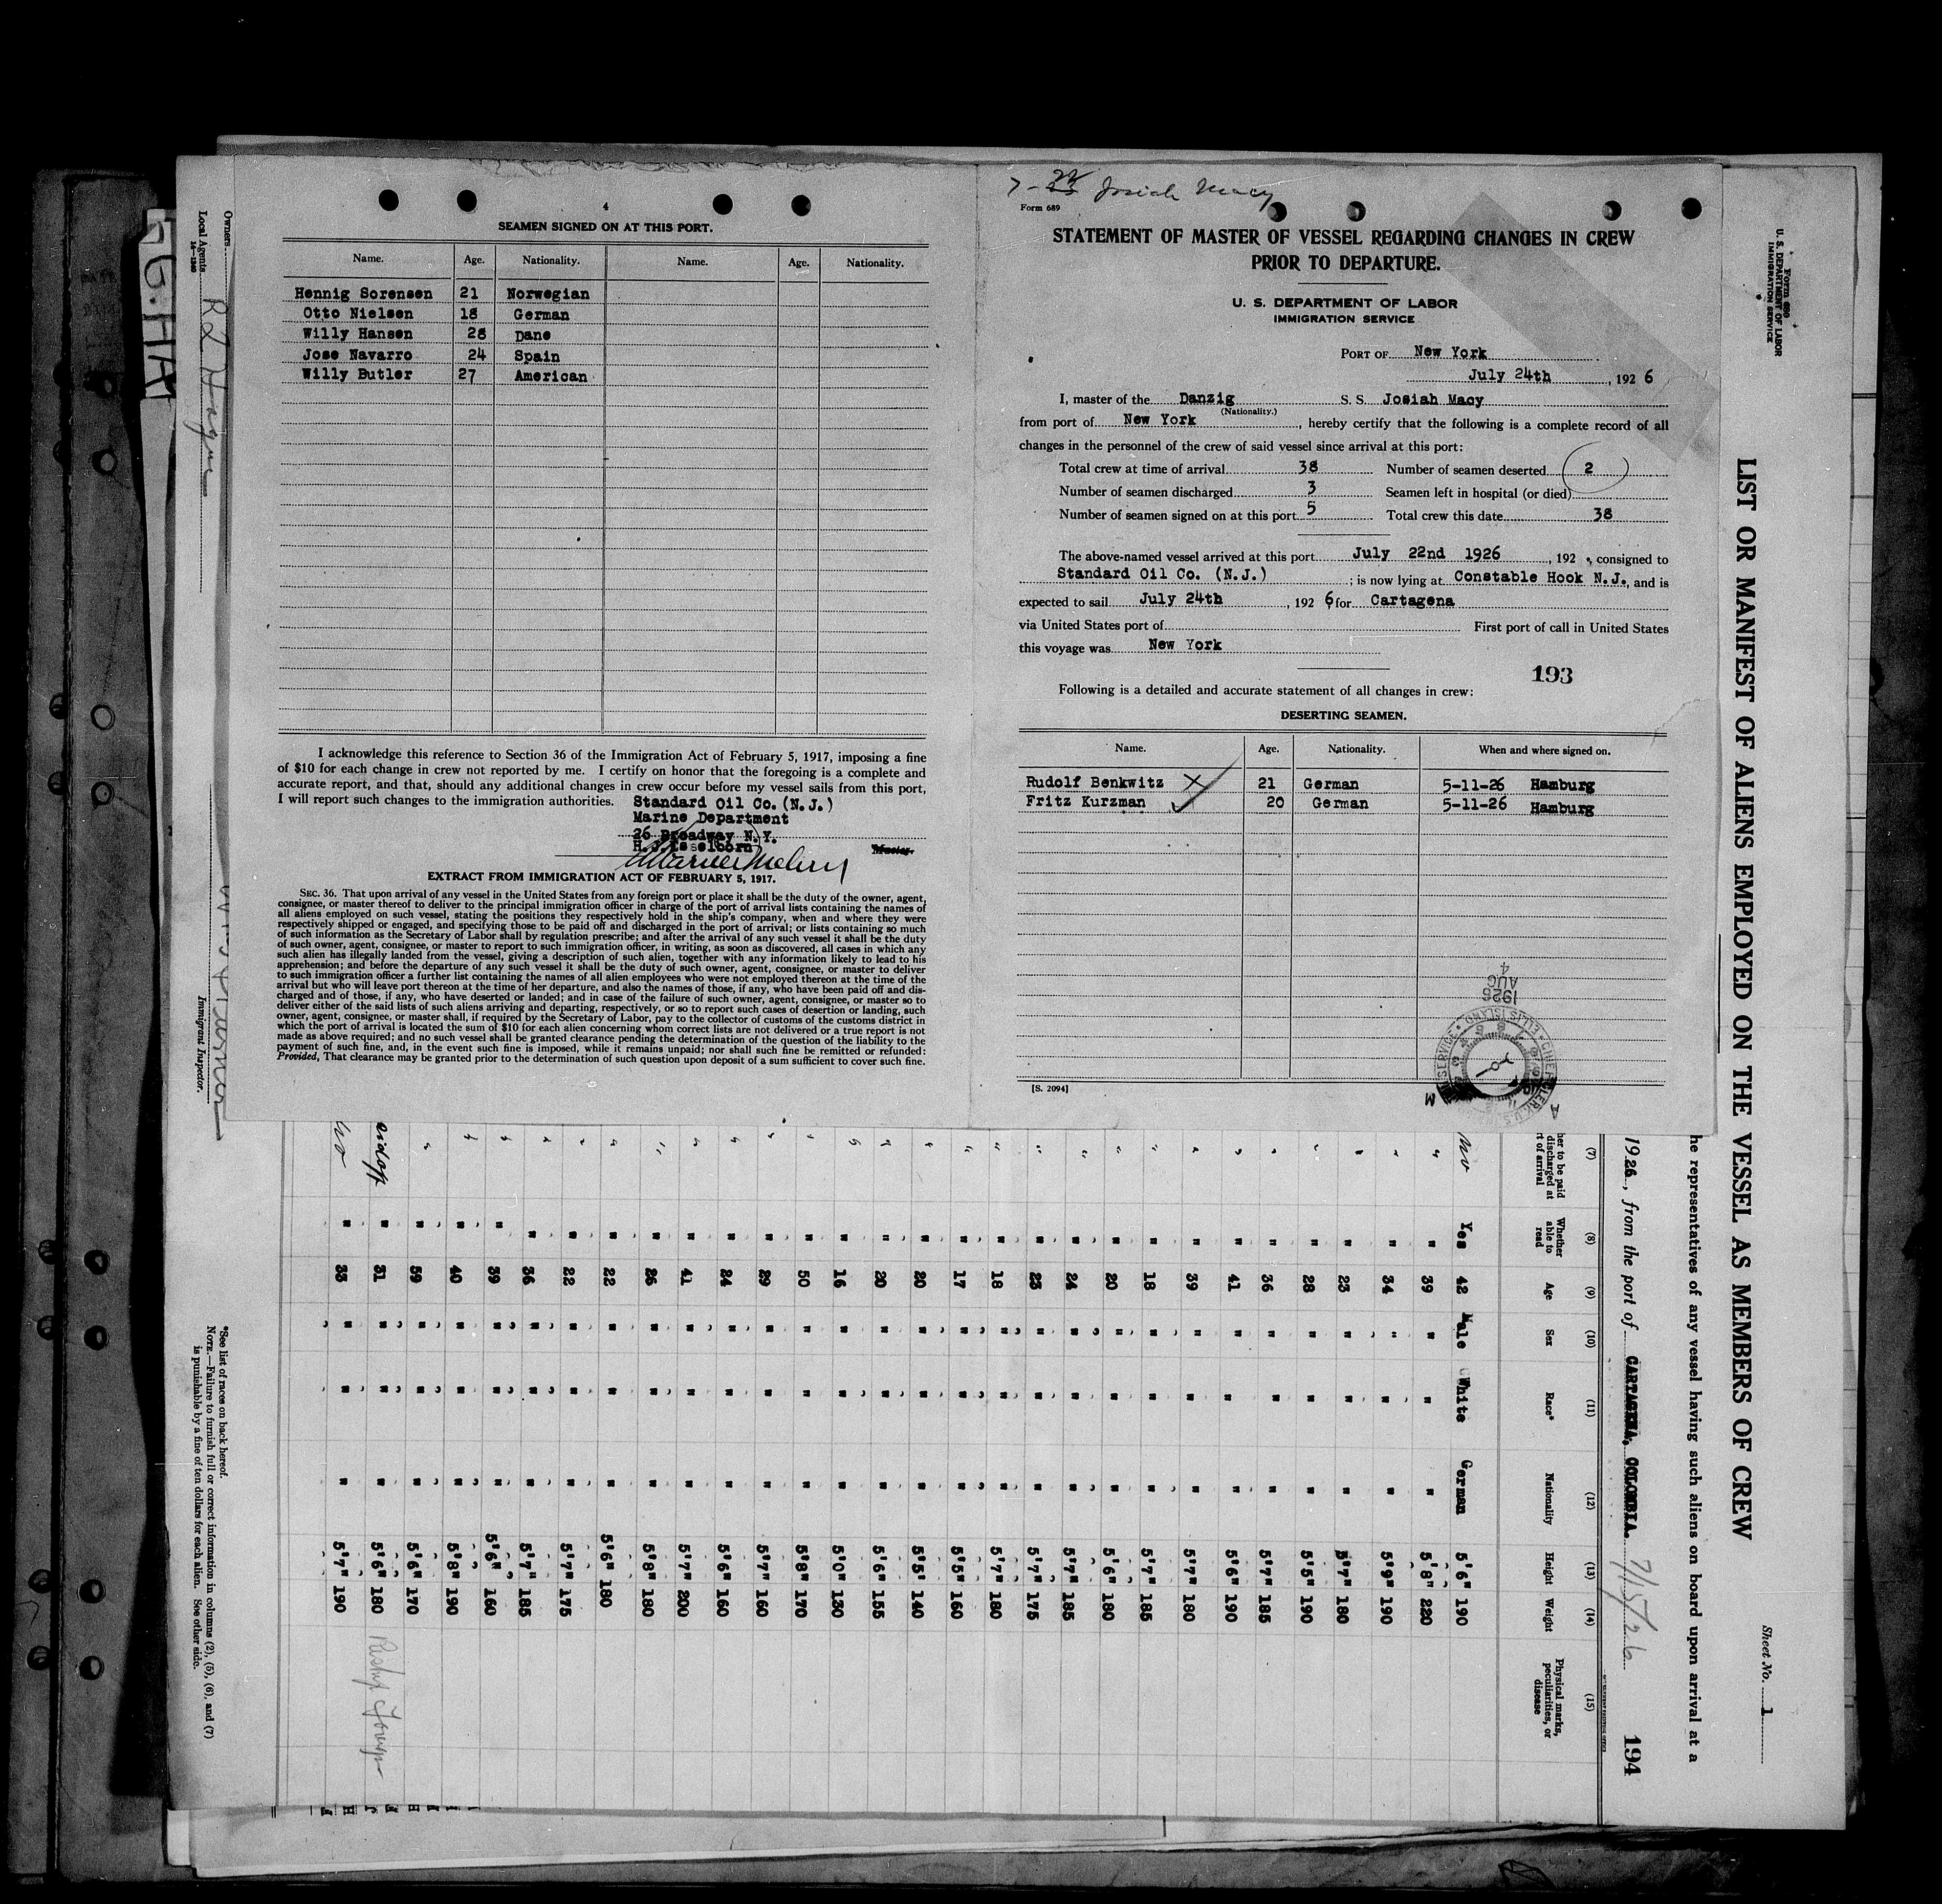 4
SEAMEN SIGNED ON AT THIS PORT.
Name. Age. Nationality. Name. Age. Nationality.
Hennig Sorensen 21 Norwegian
Otto Nielsen 18 German
Willy Hansen 28 Dane
Jose Navarro 24 Spain
Willy Butler 27 American
I acknowledge this reference to Section 36 of the Immigration Act of February 5, 1917, imposing a fine
of $10 for each change in crew not reported by me. I certify on honor that the foregoing is a complete and
accurate report, and that, should any additional changes in crew occur before my vessel sails from this port,
I will report such changes to the immigration authorities. Standard Oil Co. (N.J.)
Marine Department
26 Broadway N.Y.
H.J. Esselborn
Master.
EXTRACT FROM IMMIGRATION ACT OF FEBRUARY 5, 1917.
SEC. 36. That upon arrival of any vessel in the United States from any foreign port or place it shall be the duty of the owner, agent,
consignee, or master thereof to deliver to the principal immigration officer in charge of the port of arrival lists containing the names of
all aliens employed on such vessel, stating the positions they respectively hold in the ship's company, when and where they were
respectively shipped or engaged, and specifying those to be paid off and discharged in the port of arrival; or lists containing so much
of such information as the Secretary of Labor shall by regulation prescribe; and after the arrival of any such vessel it shall be the duty
of such owner, agent, consignee, or master to report to such immigration officer, in writing, as soon as discovered, all cases in which any
such alien has illegally landed from the vessel, giving a description of such alien, together with any information likely to lead to his
apprehension; and before the departure of any such vessel it shall be the duty of such owner, agent, consignee, or master to deliver
to such immigration officer a further list containing the names of all alien employees who were not employed thereon at the time of the
arrival but who will leave port thereon at the time of her departure, and also the names of those, if any, who have been paid off and dis-
charged and of those, if any, who have deserted or landed; and in case of the failure of such owner, agent, consignee, or master so to
deliver either of the said lists of such aliens arriving and departing, respectively, or so to report such cases of desertion or landing, such
owner, agent, consignee, or master shall, if required by the Secretary of Labor, pay to the collector of customs of the customs district in
which the port of arrival is located the sum of $10 for each alien concerning whom correct lists are not delivered or a true report is not
made as above required; and no such vessel shall be granted clearance pending the determination of the question of the liability to the
payment of such fine, and, in the event such fine is imposed, while it remains unpaid; nor shall such fine be remitted or refunded:
Provided, That clearance may be granted prior to the determination of such question upon deposit of a sum sufficient to cover such fine.
Josiah Macy
Form 689
STATEMENT OF MASTER OF VESSEL REGARDING CHANGES IN CREW
PRIOR TO DEPARTURE.
U. S. DEPARTMENT OF LABOR
IMMIGRATION SERVICE
PORT OF New York
July 24th, 192 6
I, master of the Danzig S. S. Josiah Macy
(Nationality.)
from port of New York, hereby certify that the following is a complete record of all
changes in the personnel of the crew of said vessel since arrival at this port:
Total crew at time of arrival 38 Number of seamen deserted 2
Number of seamen discharged 3 Seamen left in hospital (or died)
Number of seamen signed on at this port 5 Total crew this date 38
The above-named vessel arrived at this port July 22nd 1926, 192 , consigned to
Standard Oil Co. (N.J.); is now lying at Constable Hook N.J., and is
expected to sail July 24th, 192 6 for Cartagena
via United States port of First port of call in United States
this voyage was New York
193
Following is a detailed and accurate statement of all changes in crew:
DESERTING SEAMEN.
Name. Age. Nationality. When and where signed on.
Rudolf Benkwitz 21 German 5-11-26 Hamburg
Fritz Kurzman 20 German 5-11-26 Hamburg
1926
AUG
4
[S. 2094]
Form 680
U. S. DEPARTMENT OF LABOR
IMMIGRATION SERVICE
Sheet No. 1
LIST OR MANIFEST OF ALIENS EMPLOYED ON THE VESSEL AS MEMBERS OF CREW
he representatives of any vessel having such aliens on board upon arrival at a
1926, from the port of CARTAGENA, COLOMBIA. 7/15/26
194
(7) (8) (9) (10) (11) (12) (13) (14) (15)
her to be paid discharged at rt of arrival
Whether able to read
Age
Sex
Race*
Nationality
Height
Weight
Physical marks, peculiarities, or disease
No Yes 42 Male White German 5'6" 190
" " 39 " " " 5'8" 220
" " 34 " " " 5'9" 190
" " 23 " " " 5'7" 180
" " 28 " " " 5'5" 190
" " 36 " " " 5'7" 185
" " 41 " " " 5'6" 190
" " 39 " " " 5'7" 180
" " 18 " " " 5'7" 185
" " 20 " " " 5'6" 180
" " 24 " " " 5'7" 185
" " 23 " " " 5'7" 175
" " 18 " " " 5'7" 180
" " 17 " " " 5'5" 160
" " 20 " " " 5'5' 140
" " 20 " " " 5'6" 155
" " 16 " " " 5'0" 130
" " 50 " " " 5'8" 170
" " 29 " " " 5'7" 160
" " 24 " " " 5'6" 160
" " 41 " " " 5'7" 200
" " 26 " " " 5'8" 180
" " 22 " " " 5'6" 180
" " 22 " " " 5'7" 175
" " 36 " " " 5'7" 185
" " 39 " " " 5'6" 160
" " 40 " " " 5'8" 190
" " 59 " " " 5'6" 170
" 31 " " " 5'6" 180
No " 33 " " " 5'7" 190
*See list of races on back hereof.
NOTE.—Failure to furnish full or correct information in columns (2), (5), (6), and (7)
is punishable by a fine of ten dollars for each alien. See other side.
Owners
Local Agents
Immigrant Inspector.